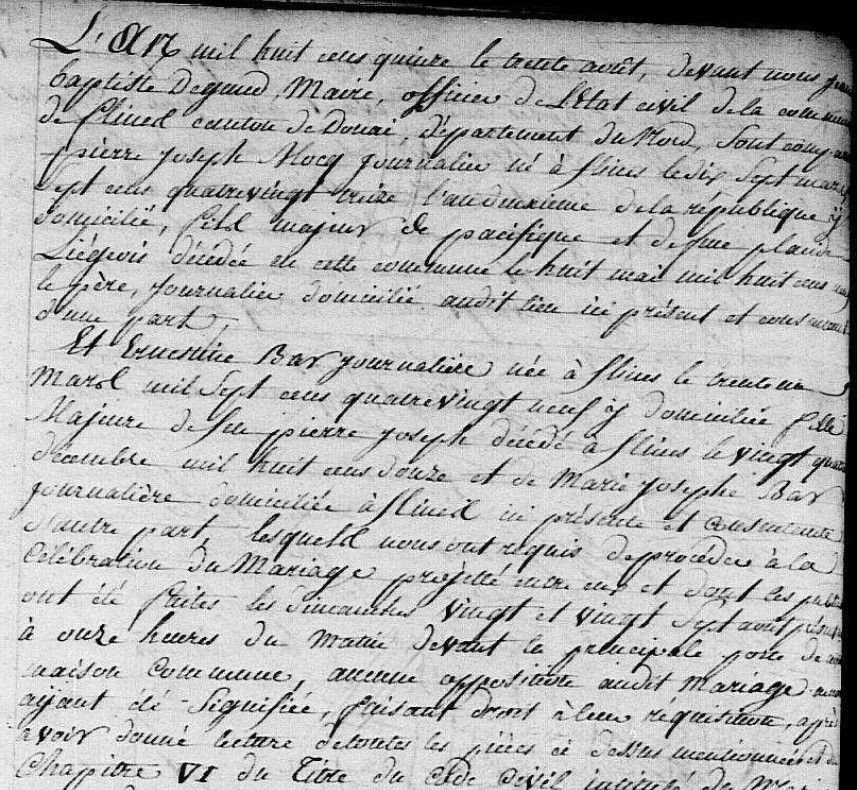 L'An mil huit cens quinze le trente août, devant nous jean
baptiste Degand, Maire, officier de l'Etat civil de la commune
de flines canton de Douai, département du Nord, sont compar
pierre joseph Mocq journalier né à flines le dix sept mars
sept cens quatrevingt treize l'an deuxieme de la république y
domicilié, fils majeur de pacifique et de feue placide
Liégeois décédée en cette commune le huit mai mil huit cens
le père, journalier domicilié audit lieu ici présent et consentant
d'une part,
Et Ernestine Bar journalière née à flines le trente un
Mars mil sept cens quatrevingt neuf y domiciliée fille
Majeure de feu pierre joseph décédé à flines le vingt quatre
décembre mil huit cens douze et de Marie josephe Bar
journalière domiciliée à flines ici présente et consentante
d'autre part, lesquels nous ont requis de procéder à la
Célébration du Mariage projetté entre eux et dont les public
ont été faites les dimanches vingt et vingt sept août présent
à onze heures du matin devant la principale porte de notre
maison Commune, aucune opposition audit Mariage ne nous
ayant été signifiée, faisant droit à leur requisition, après
avoir donné lecture de toutes les pièces ci dessus mentionnées et du
Chapitre VI du Titre du Code Civil intitulé du Mariage